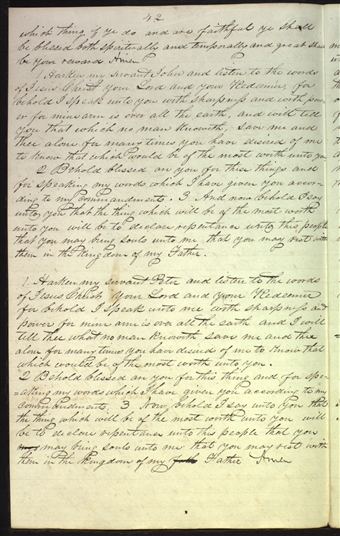 42
which thing if ye do and are faithful ye shall
be blessed both spiritually and temporally and great shall
be your reward Amen
1 Harken my servant John and listen to the words
of Jesus Christ your Lord and your Redeemer for
behold I speak unto you with sharpness and with pow
er for mine arm is over all the earth, and will tell
you that which no man knoweth, save me and
thee alone for many times you have desired of me
to know that which would be of the most worth unto you
2 Behold blessed are you for these things and
for speaking my words which I have given you accor-
ding to my commandments. 3 And now behold I say
unto you that the thing which will be of the most worth
unto you will be to declare repentance unto this people
that you may bring souls unto me that you may rest with
them in the kingdom of my Father.
1. Harken my servant Peter and listen to the words
of Jesus Christ your Lord and your Redeemer
for behold I speak unto me with sharpness and
power for mine arm is over all the earth and I will
tell thee what no man knoweth save me and thee
alone for many times you have desired of me to know that
which would be of the most worth unto you.
2 Behold blessed are you for this thing and for spe
aking my words which I have given you according to my
commandments, 3 Now, behold I say unto you that
the thing which will be of the most worth unto you will
be to declare repentance unto this people that you
may bring souls unto me that you may rest with
them in the kingdom of my Father Amen